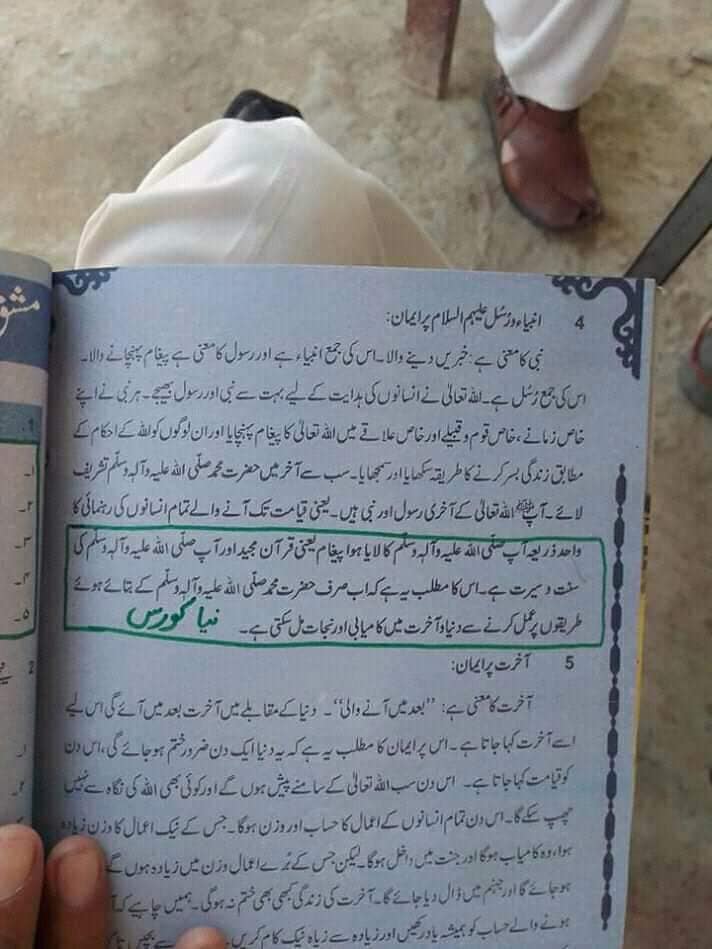 مشق
4 انبیاء و رُسُل علیہم السلام پر ایمان:
نبی کا معنی ہے: خبریں دینے والا۔ اس کی جمع انبیاء ہے اور رسول کا معنی ہے پیغام پہنچانے والا۔
اس کی جمع رُسُل ہے۔ اللہ تعالیٰ نے انسانوں کی ہدایت کے لیے بہت سے نبی اور رسول بھیجے۔ ہر نبی نے اپنے
خاص زمانے، خاص قوم و قبیلے اور خاص علاقے میں اللہ تعالیٰ کا پیغام پہنچایا اور ان لوگوں کو اللہ کے احکام کے
مطابق زندگی بسر کرنے کا طریقہ سکھایا اور سمجھایا۔ سب سے آخر میں حضرت محمد صلّی اللہ علیہ وآلہٖ وسلّم تشریف
لائے۔ آپ ﷺ اللہ تعالیٰ کے آخری رسول اور نبی ہیں۔ یعنی قیامت تک آنے والے تمام انسانوں کی رہنمائی کا
واحد ذریعہ آپ صلّی اللہ علیہ وآلہٖ وسلّم کا لایا ہوا پیغام یعنی قرآن مجید اور آپ صلّی اللہ علیہ وآلہٖ وسلّم کی
سنت و سیرت ہے۔ اس کا مطلب یہ ہے کہ اب صرف حضرت محمد صلّی اللہ علیہ وآلہٖ وسلّم کے بتائے ہوئے
طریقوں پر عمل کرنے سے دنیا و آخرت میں کامیابی اور نجات مل سکتی ہے۔ نیا کورس
5 آخرت پر ایمان:
آخرت کا معنی ہے: ’’بعد میں آنے والی‘‘۔ دنیا کے مقابلے میں آخرت بعد میں آئے گی اس لیے
اسے آخرت کہا جاتا ہے۔ اس پر ایمان کا مطلب یہ ہے کہ یہ دنیا ایک دن ضرور ختم ہو جائے گی، اس دن
کو قیامت کہا جاتا ہے۔ اس دن سب اللہ تعالیٰ کے سامنے پیش ہوں گے اور کوئی بھی اللہ کی نگاہ سے نہیں
چھپ سکے گا۔ اس دن تمام انسانوں کے اعمال کا حساب اور وزن ہوگا۔ جس کے نیک اعمال کا وزن زیادہ
ہوا، وہ کامیاب ہوگا اور جنت میں داخل ہوگا۔ لیکن جس کے بُرے اعمال وزن میں زیادہ ہوں گے
ہو جائے گا اور جہنم میں ڈال دیا جائے گا۔ آخرت کی زندگی کبھی بھی ختم نہ ہوگی۔ ہمیں چاہیے کہ
ہونے والے حساب کو ہمیشہ یاد رکھیں اور زیادہ سے زیادہ نیک کام کریں۔ سے بچیں
1
۱۔
۲۔
۳۔
۴۔
۵۔
2
۱۔
۲۔